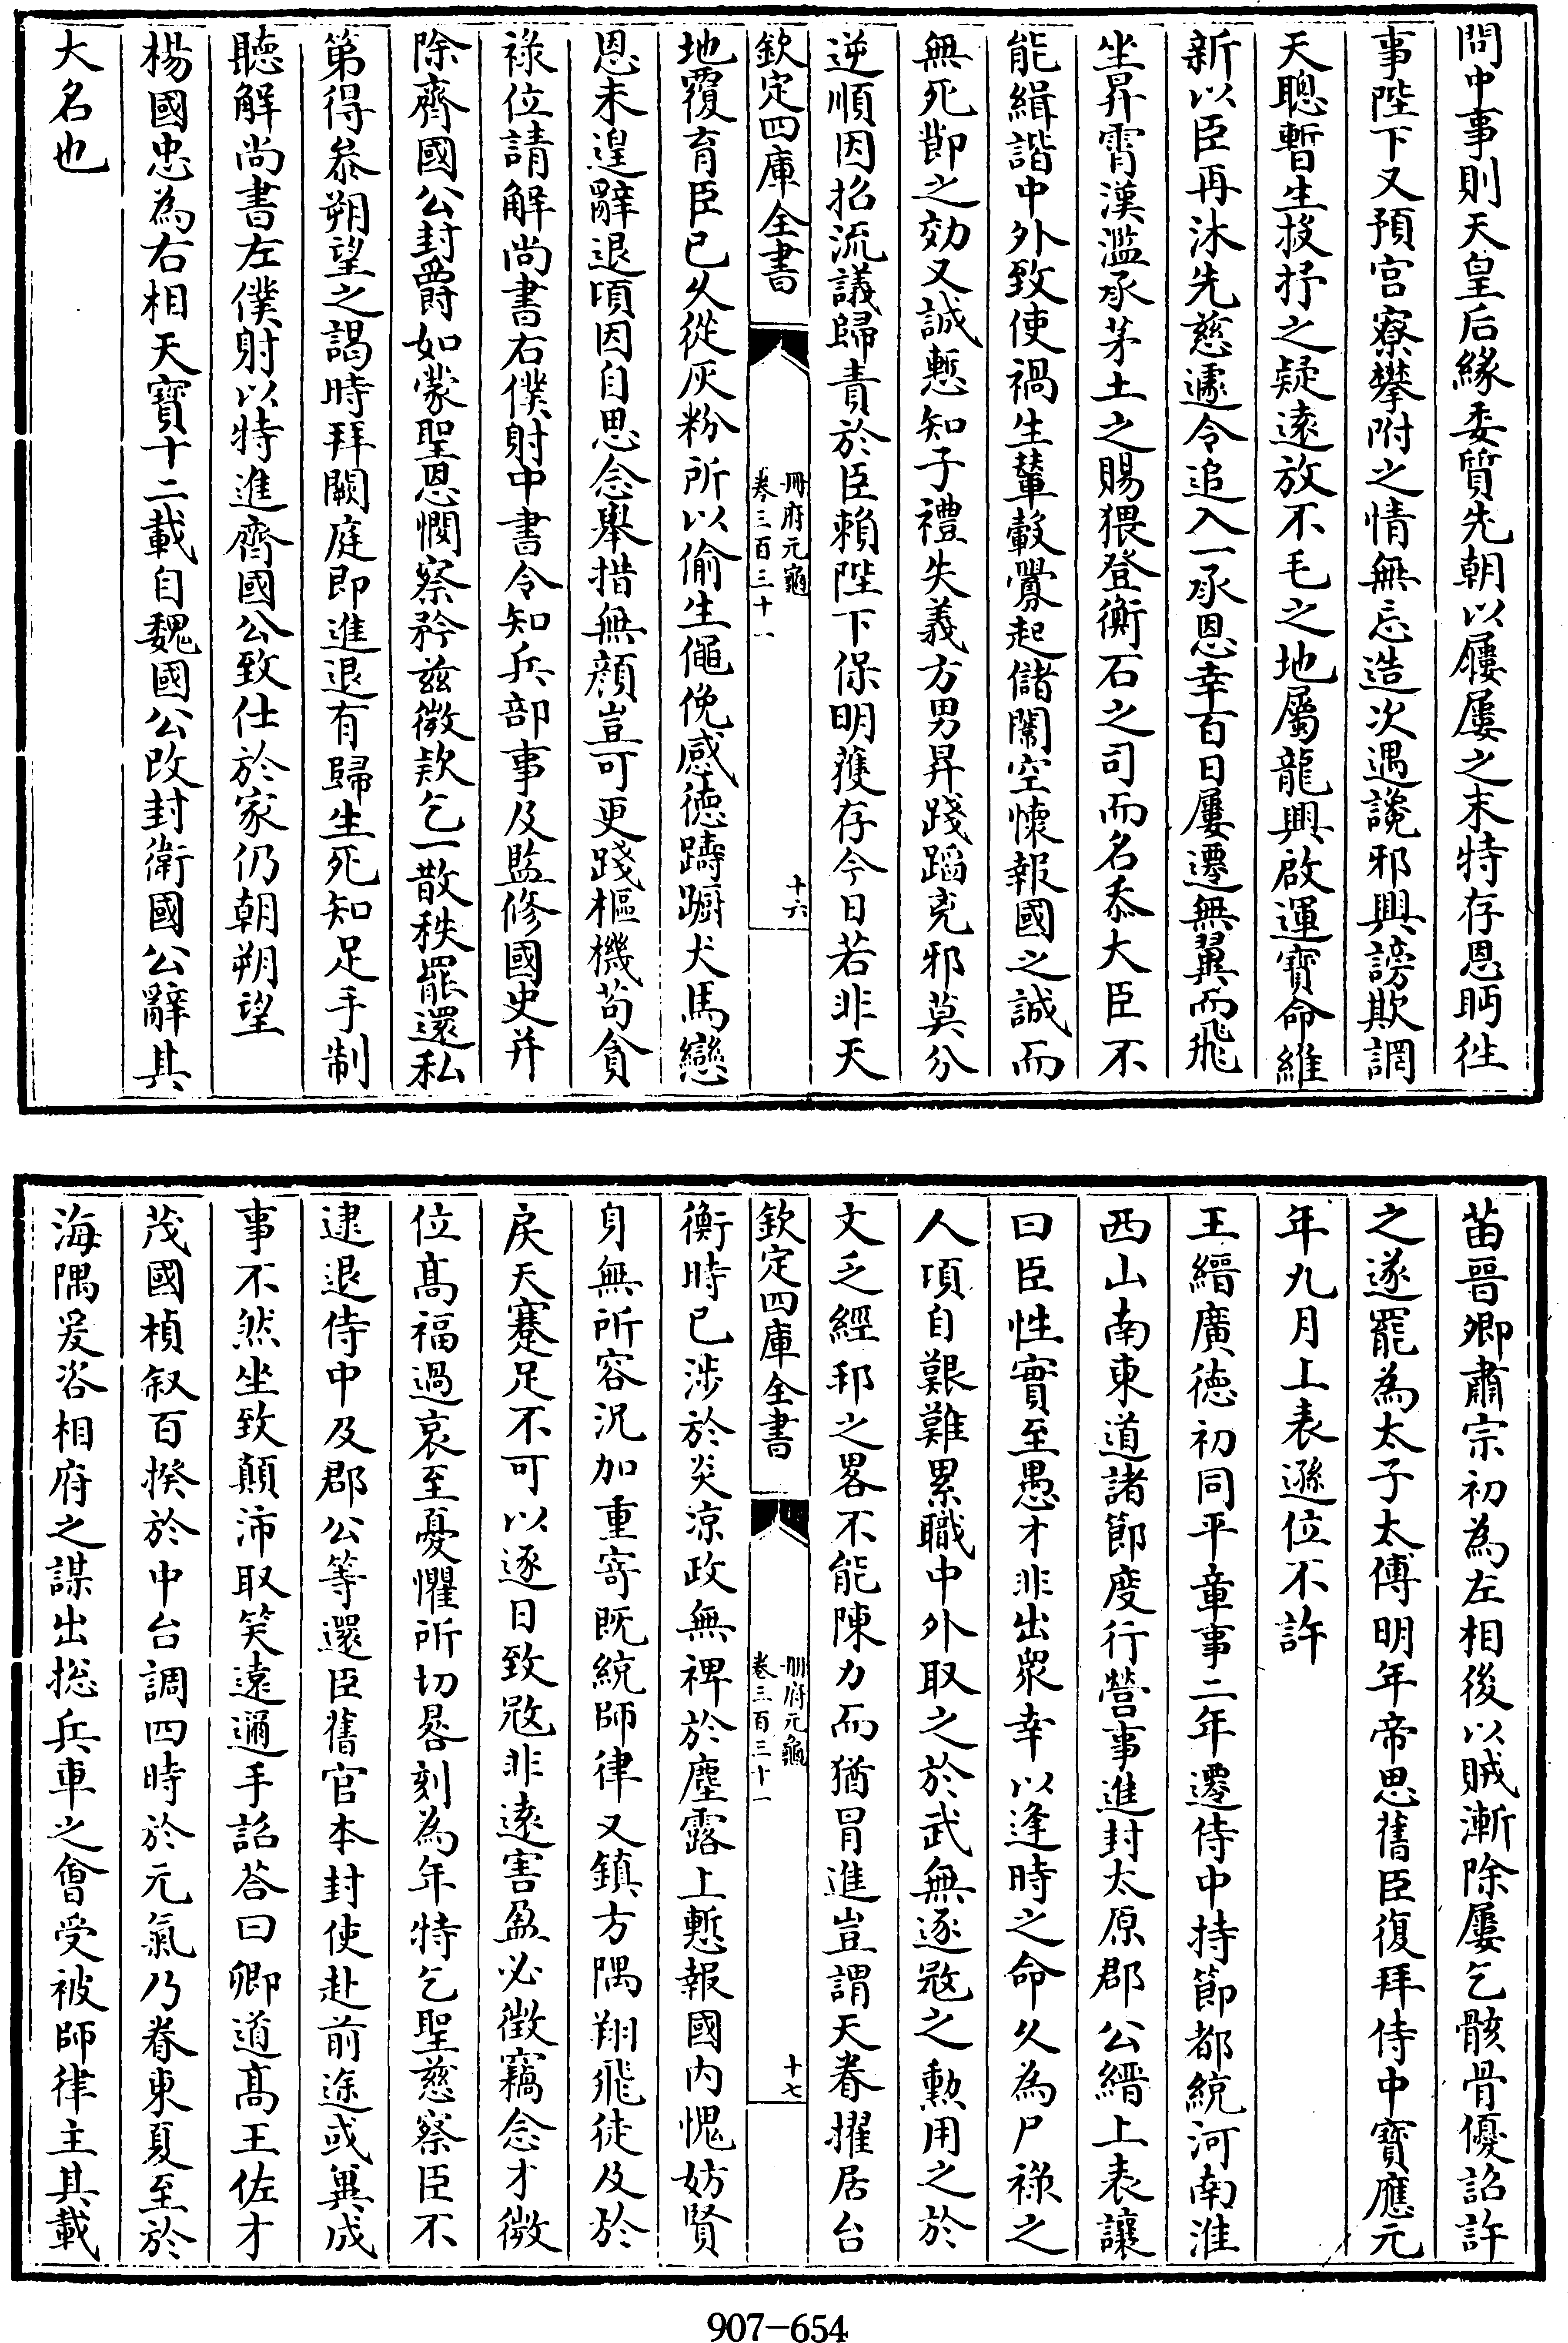 問中事則天皇后緣委質先朝以屨屢之末特存恩眄徃
事陛下又預宫寮攀附之情無忘造次遇讒邪興謗欺誷
天聰暫生投抒之疑逺放不毛之地屬龍興啟運寶命維
新以臣再沐先慈遽令追入一承恩幸百日屢遷無翼而飛
坐昇霄漢濫承茅土之賜猥登衡石之司而名忝大臣不
能緝諧中外致使禍生輦轂釁起儲闈空懷報國之誠而
無死節之効又誠慙知子禮失義方男昇踐蹈兇邪莫分
逆順因招流議歸責於臣賴陛下保明獲存今日若非天
欽定四庫全書
冊府元龜
卷三百三十一
十六
地覆育臣已久從灰粉所以偷生僶俛感徳躊躕犬馬戀
恩未遑辭退頃因自思念舉措無顔豈可更踐樞機苟貪
祿位請解尚書右僕射中書令知兵部事及監修國史并
除齊國公封爵如蒙聖恩憫察矜兹微欵乞一散秩罷還私
第得叅朔望之謁時拜闕庭即進退有歸生死知足手制
聽解尚書左僕射以特進齊國公致仕於家仍朝朔望
楊國忠為右相天寶十二載自魏國公改封衛國公辭其
大名也
苗晉卿肅宗初為左相後以賊漸除屢乞骸骨優詔許
之遂罷為太子太傅明年帝思舊臣復拜侍中寶應元
年九月上表遜位不許
王縉廣徳初同平章事二年遷侍中持節都統河南淮
西山南東道諸節度行營事進封太原郡公縉上表讓
曰臣性實至愚才非出衆幸以逢時之命久為尸祿之
人項自艱難累職中外取之於武無逐㓂之勲用之於
文乏經邦之畧不能陳力而猶冐進豈謂天眷擢居台
欽定四庫全書
冊府元龜
卷三百三十一
十七
衡時已涉於炎凉政無裨於塵露上慙報國内愧妨賢
身無所容况加重寄既統師律又鎮方隅翔飛徒及於
戾天蹇足不可以逐日致㓂非逺害盈必徵竊念才微
位髙福過哀至憂懼所切晷刻為年特乞聖慈察臣不
逮退侍中及郡公等還臣舊官本封使赴前途或兾成
事不然坐致顛沛取笑逺邇手詔荅曰卿道髙王佐才
茂國楨叙百揆於中台調四時於元氣乃眷東夏至於
海隅爰咨相府之謀出揔兵車之㑹受被師律主其載
907-654